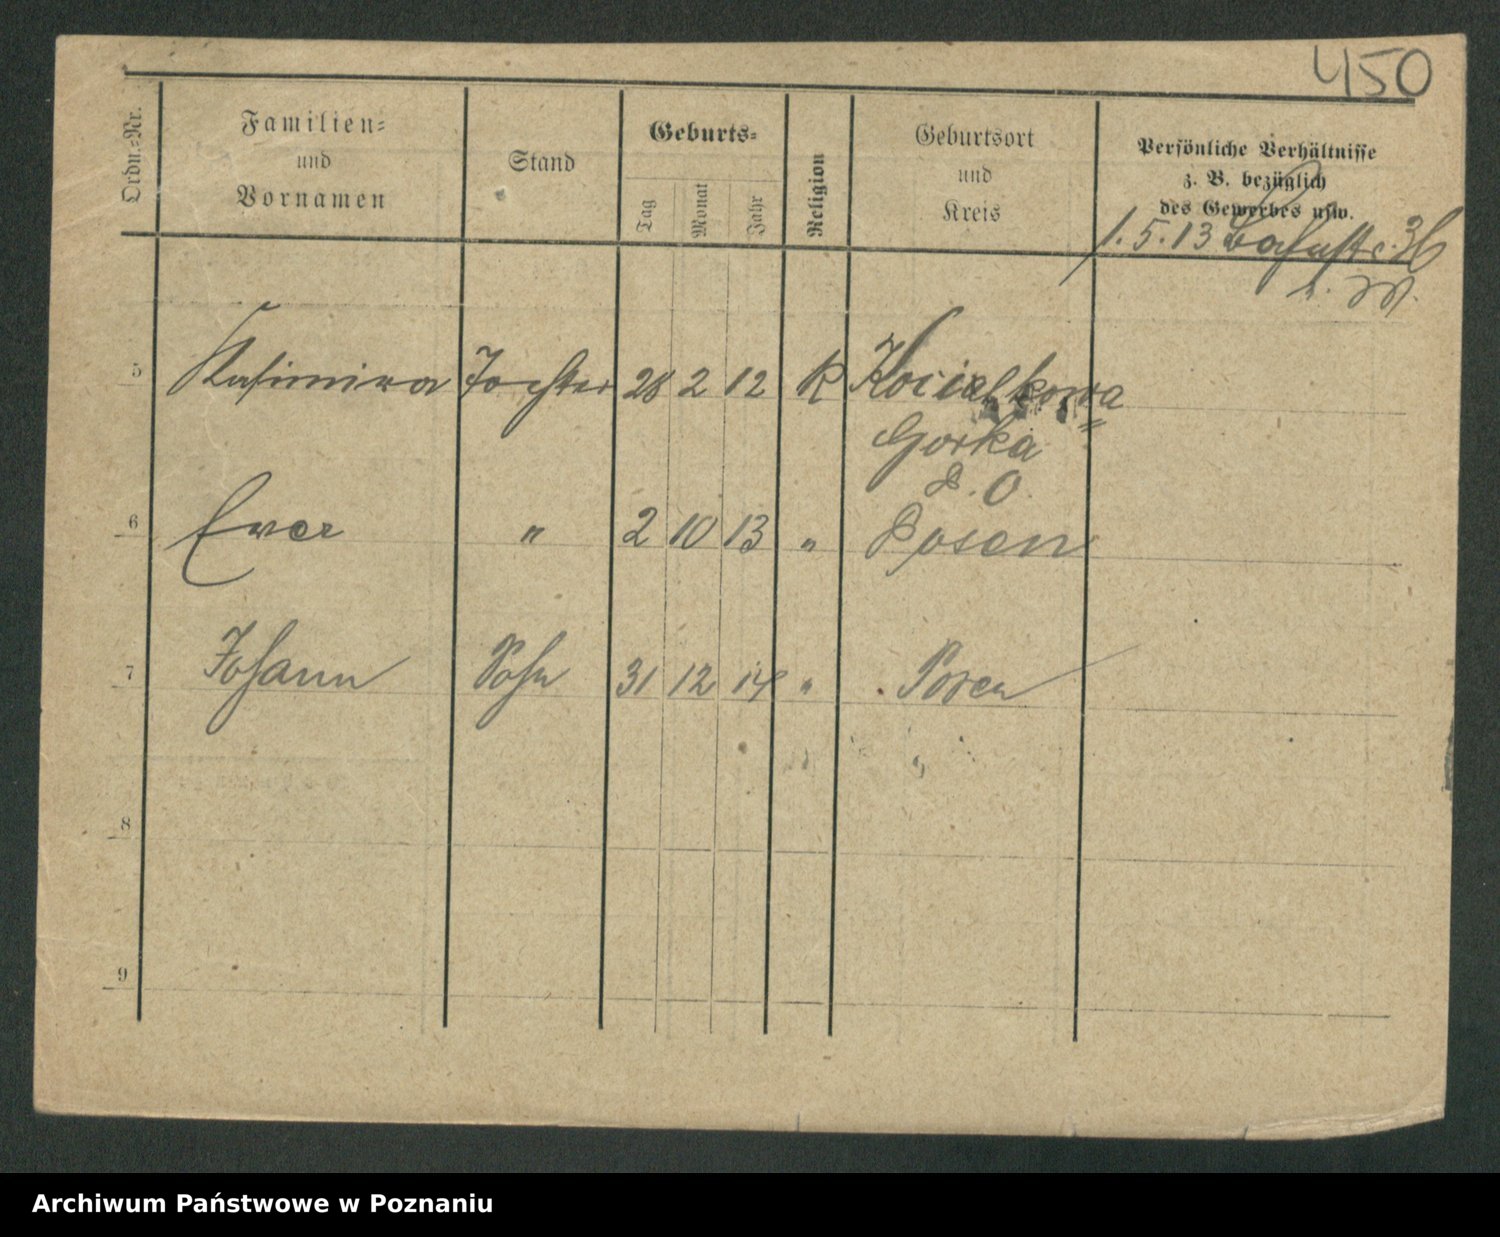 450
Ordn.-Nr.
Familien-
und
Vornamen
Stand
Geburts-
Tag
Monat
Jahr
Religion
Geburtsort
und
Kreis
Persönliche Verhältnisse
z. B. bezüglich
des Gewerbes usw.
1. 5. 13 36
5 Kasimira Tochter 28 2 12 K Kocialkowa
Gorka
P. O.
6 Ewa " 2 10 13 " Posen
7 Johann Sohn 31 12 14 " Posen
8
9
Archiwum Państwowe w Poznaniu